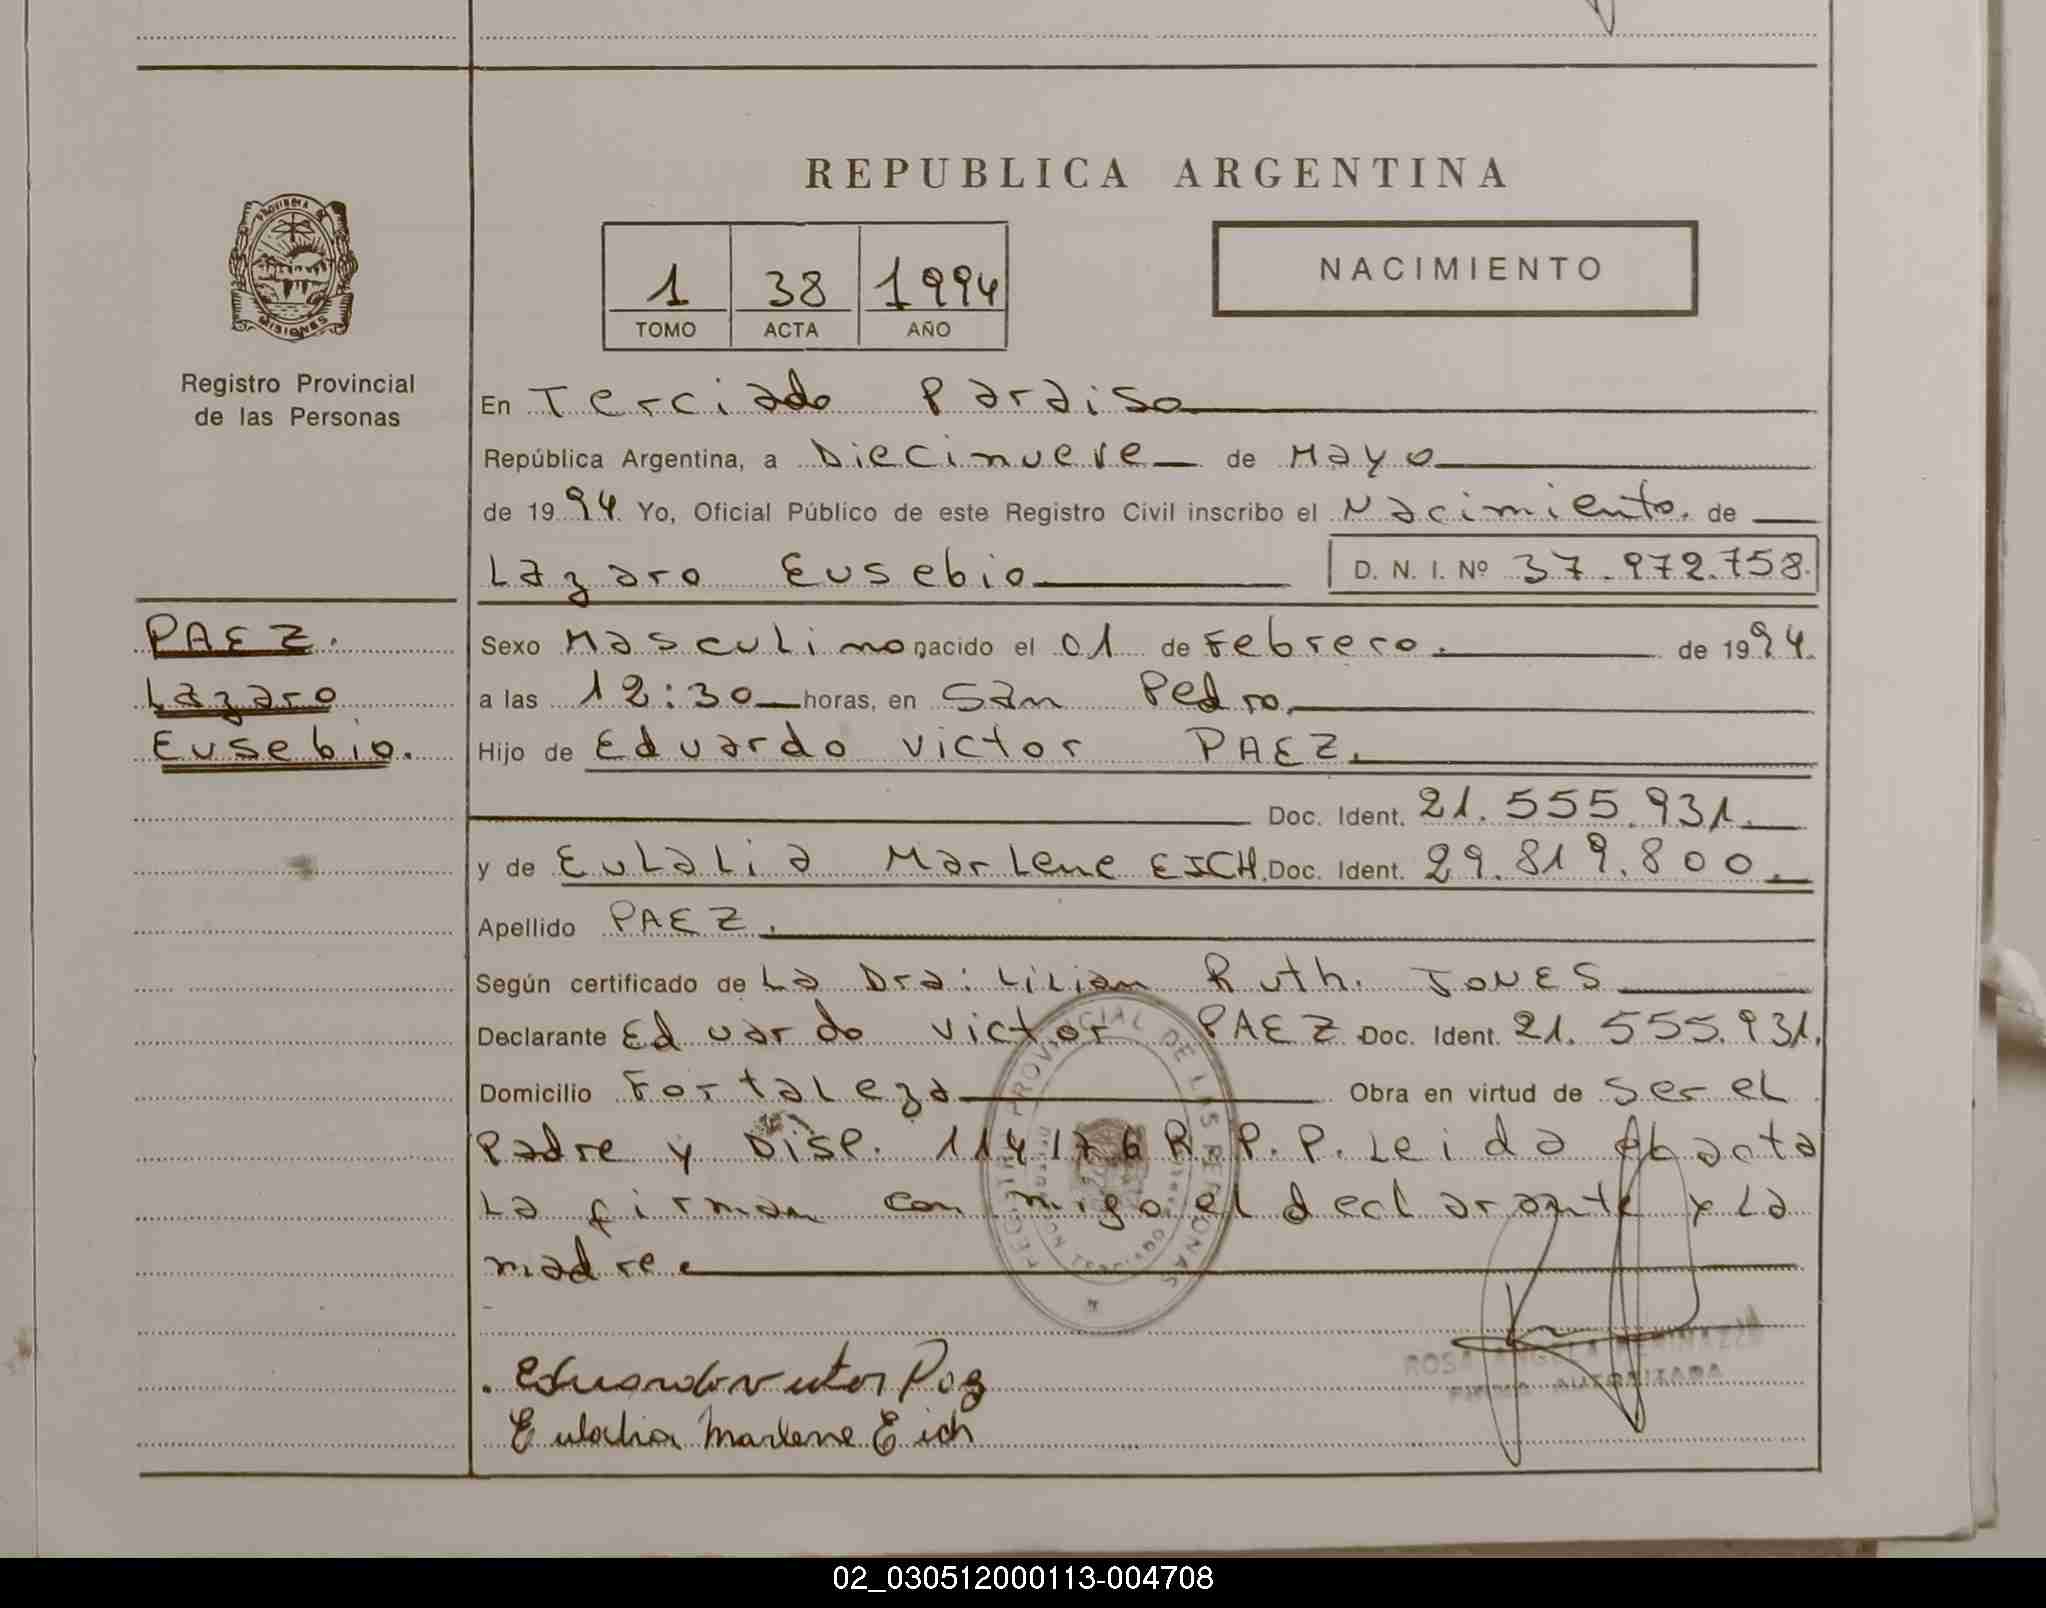 REPUBLICA ARGENTINA
PROVINCIA DE
MISIONES
Registro Provincial
de las Personas
1 38 1994
TOMO ACTA AÑO
NACIMIENTO
En Terciado Paraiso
República Argentina, a Diecinueve de Mayo
de 1994 Yo, Oficial Público de este Registro Civil inscribo el Nacimiento. de
Lazaro Eusebio D. N. I. Nº 37.972.758.
PAEZ.
Lazaro
Eusebio.
Sexo Masculino nacido el 01 de Febrero. de 1994.
a las 12:30 horas, en San Pedro.
Hijo de Eduardo Victor PAEZ.
Doc. Ident. 21.555.931.
y de Eulalia Marlene EICH. Doc. Ident. 29.819.800.
Apellido PAEZ.
Según certificado de La Dra: Lilian Ruth. JONES
Declarante Eduardo Victor PAEZ Doc. Ident. 21.555.931.
Domicilio Fortaleza Obra en virtud de ser el
Padre y Disp. 114/76 R.P.P. Leida el acta
La firman con migo el declarante y La
madre.
PROVINCIAL DE LAS PERSONAS
Eduardo victor Paez
Eulalia Marlene Eich
ROSA ANGELA
FIRMA AUTORIZADA
02_030512000113-004708